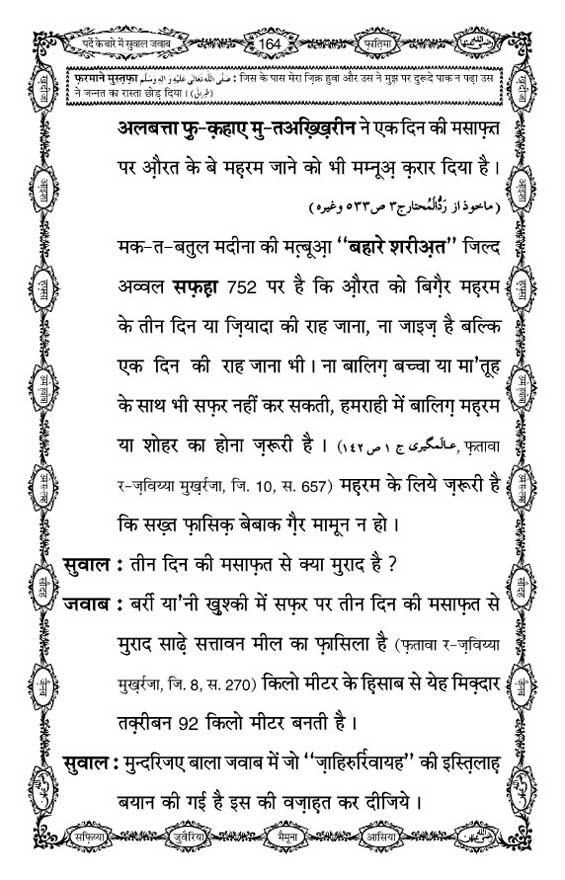 पर्दे के बारे में सुवाल जवाब 164 फ़ातिमा
फ़रमाने मुस्तफ़ा صَلَّى اللّٰهُ تَعَالٰى عَلَيْهِ وَاٰلِهٖ وَسَلَّم : जिस के पास मेरा ज़िक्र हुवा और उस ने मुझ पर दुरूदे पाक न पढ़ा उस
ने जन्नत का रास्ता छोड़ दिया । (طبرانی)
अलबत्ता फ़ु-क़हाए मु-तअख़्ख़िरीन ने एक दिन की मसाफ़त
पर औ़रत के बे महरम जाने को भी मम्नूअ़ क़रार दिया है ।
(ماخوذ از رَدُّالْمُحتارج٣ ص٥٣٣ وغیرہ)
मक-त-बतुल मदीना की मत़्बूआ़ "बहारे शरीअ़त" जिल्द
अव्वल सफ़ह़ा 752 पर है कि औ़रत को बिग़ैर महरम
के तीन दिन या ज़ियादा की राह जाना, ना जाइज़ है बल्कि
एक दिन की राह जाना भी । ना बालिग़ बच्चा या मा'तूह
के साथ भी सफ़र नहीं कर सकती, हमराही में बालिग़ महरम
या शोहर का होना ज़रूरी है । (عالمگیری ج ١ ص ١٤٢, फ़तावा
र-ज़विय्या मुख़र्रजा, जि. 10, स. 657) महरम के लिये ज़रूरी है
कि सख़्त फ़ासिक़ बेबाक ग़ैर मामून न हो ।
सुवाल : तीन दिन की मसाफ़त से क्या मुराद है ?
जवाब : बर्री या'नी ख़ुश्की में सफ़र पर तीन दिन की मसाफ़त से
मुराद साढ़े सत्तावन मील का फ़ासिला है (फ़तावा र-ज़विय्या
मुख़र्रजा, जि. 8, स. 270) किलो मीटर के हिसाब से येह मिक़्दार
तक़्रीबन 92 किलो मीटर बनती है ।
सुवाल : मुन्दरिजए बाला जवाब में जो "ज़ाहिरुर्रिवायह" की इस्तिलाह़
बयान की गई है इस की वज़ाहत कर दीजिये ।
सफ़िय्या जुवैरिया मैमूना आसिया